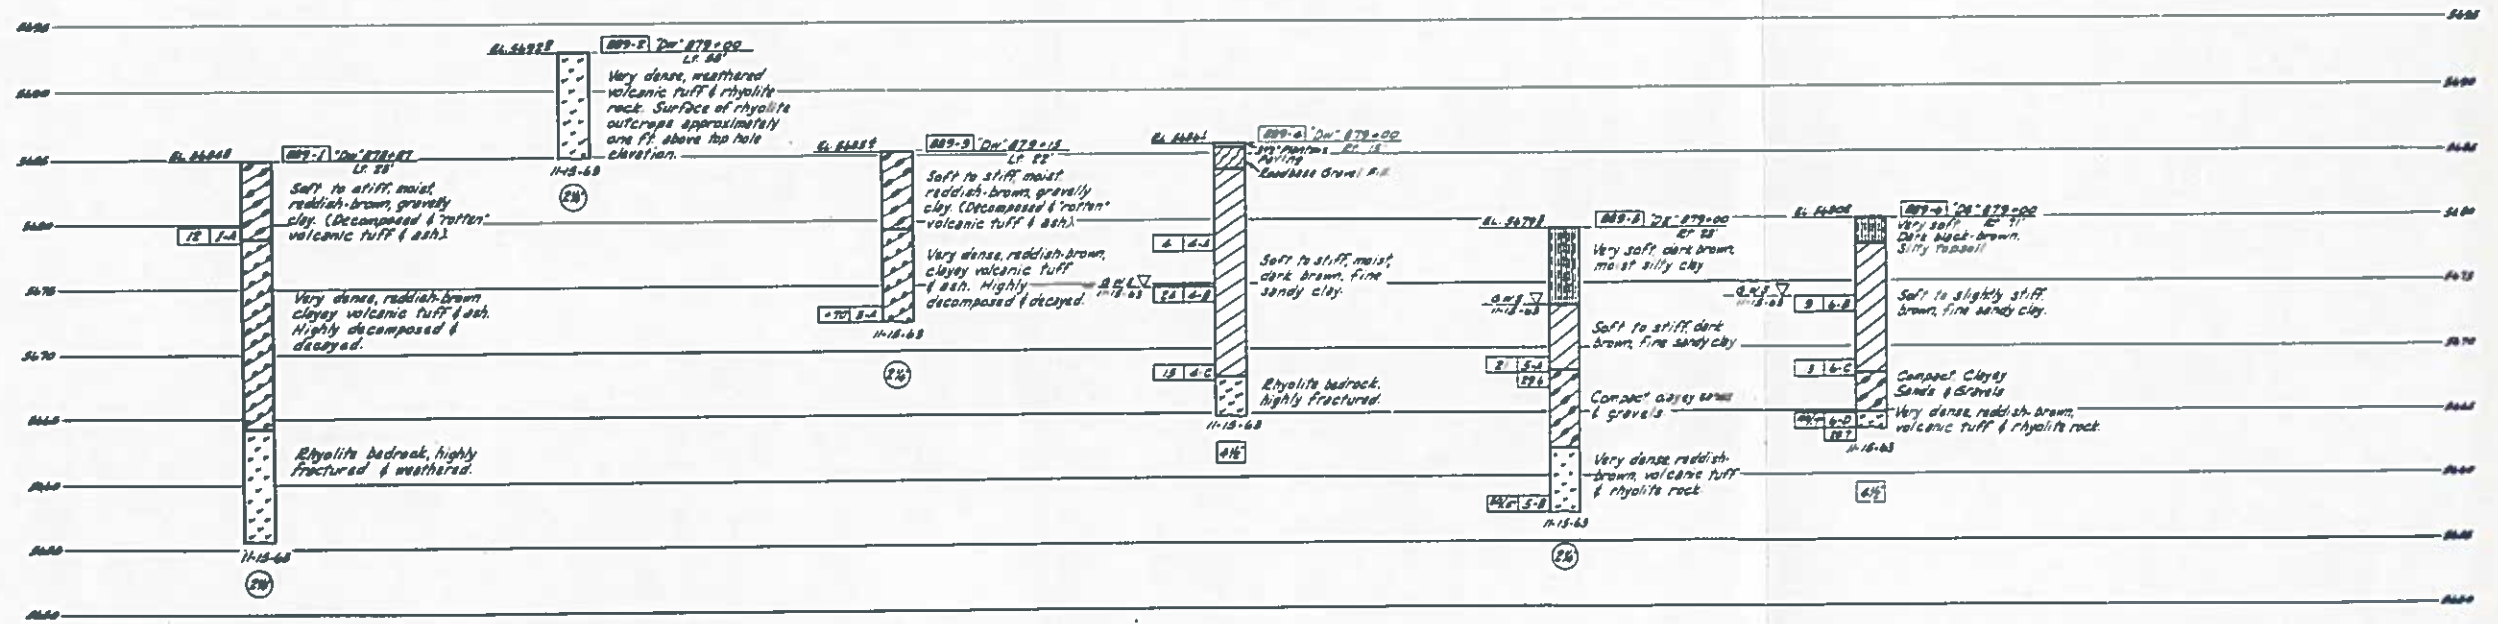 5695
5695
5690
5690
5685
5685
5680
5680
5675
5675
5670
5670
5665
5665
5660
5660
5655
5655
5650
5650
B89-1 "Dw" 878+87
Lt. 28'
Soft to stiff, moist,
reddish-brown, gravelly
clay. (Decomposed & "rotten"
volcanic tuff & ash).
12 1-A
Very dense, reddish-brown
clayey volcanic tuff & ash.
Highly decomposed &
decayed.
Rhyolite bedrock, highly
fractured & weathered.
11-15-63
2½"
B89-2 "Dw" 879+00
Very dense, weathered
volcanic tuff & rhyolite
rock. Surface of rhyolite
outcrops approximately
one ft. above top hole
elevation.
11-15-63
2½"
B89-3 "Dw" 879+15
Lt. 22'
Soft to stiff, moist,
reddish-brown, gravelly
clay. (Decomposed & "rotten"
volcanic tuff & ash).
Very dense, reddish-brown,
clayey volcanic tuff
& ash. Highly
decomposed & decayed.
3-A
11-15-63
2½"
B89-4 "Dw" 879+00
Rt. 15'
Paving
Roadbase Gravel Fill
4 4-A
G.W.S.
11-15-63
24 4-B
Soft to stiff, moist,
dark brown, fine
sandy clay.
15 4-C
Rhyolite bedrock,
highly fractured.
11-15-63
4½"
B89-5 879+00
Very soft, dark brown,
moist silty clay
G.W.S.
11-15-63
Soft to stiff, dark
brown, fine sandy clay
21 5-A
Compact clayey sands
& gravels
Very dense, reddish-
brown, volcanic tuff
& rhyolite rock
5-B
11-15-63
2½"
B89-6 879+00
Very soft
Dark black-brown,
Silty topsoil
G.W.S.
11-15-63
9 6-B
Soft to slightly stiff,
brown, fine sandy clay.
6-C
Compact Clayey
Sands & Gravels
6-D
Very dense, reddish-brown,
volcanic tuff & rhyolite rock.
11-15-63
4½"